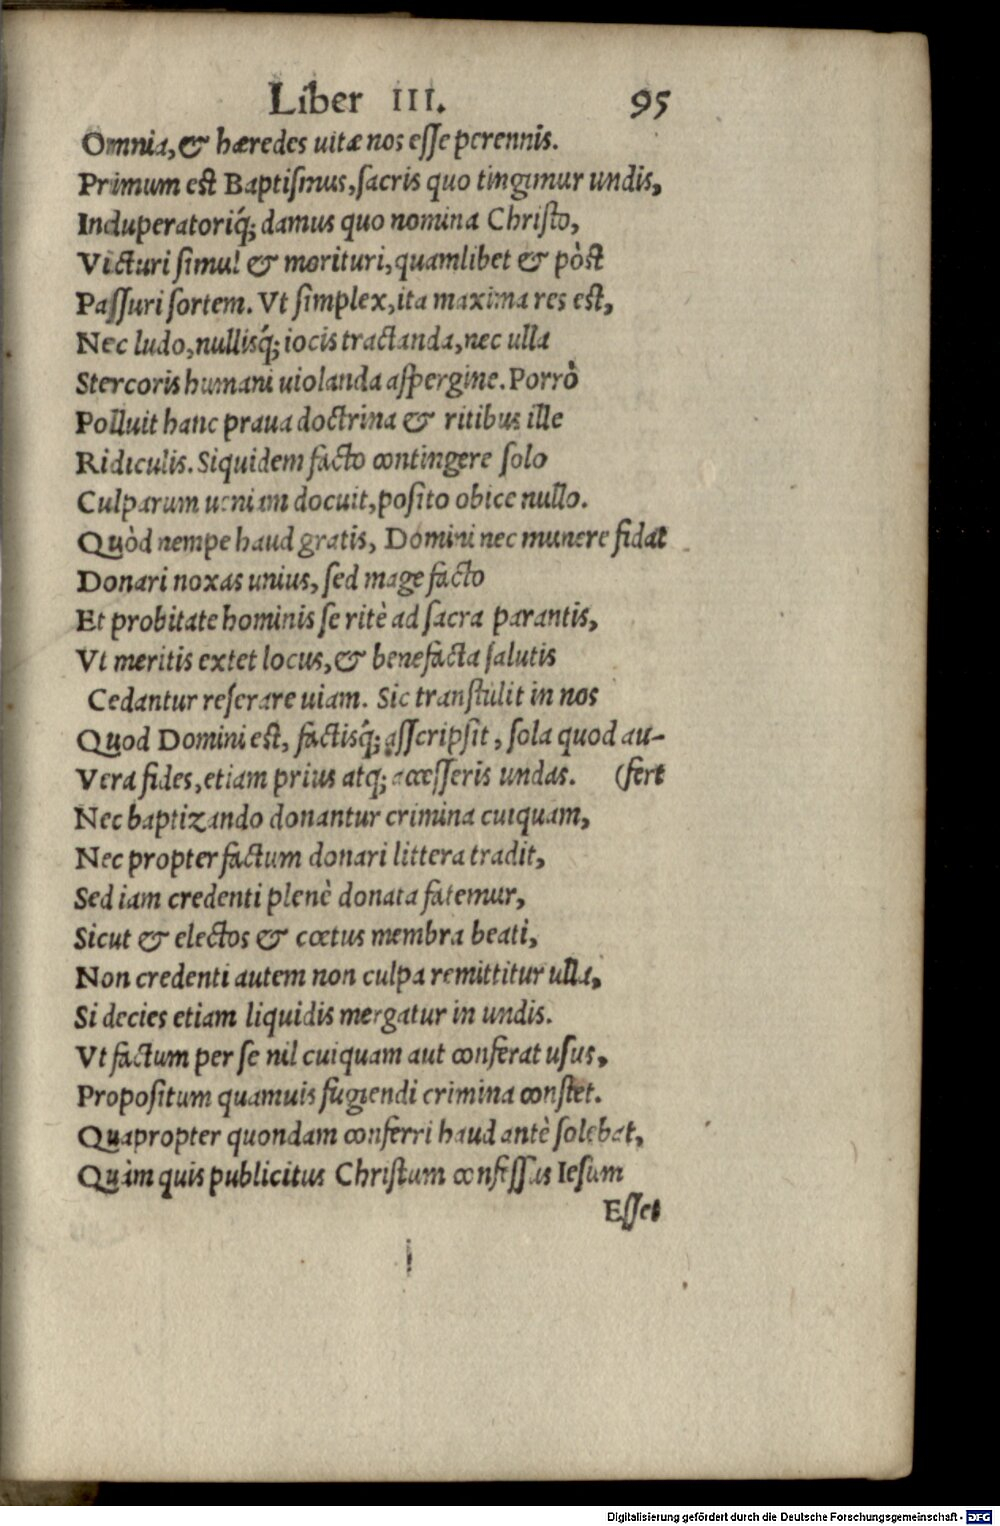 Liber III. 95
Omnia, & hæredes uitæ nos eſſe perennis.
Primum est Baptiſmus, ſacris quo tingimur undis,
Induperatoriq́; damus quo nomina Chriſto,
Victuri ſimul & morituri, quamlibet & pòst
Paſſuri ſortem. Vt ſimplex, ita maxima res est,
Nec ludo, nullisq́; iocis tractanda, nec ulla
Stercoris humani uiolanda aſpergine. Porrò
Polluit hanc praua doctrina & ritibus ille
Ridiculis. Siquidem facto contingere ſolo
Culparum ueniam docuit, poſito obice nullo.
Quòd nempe haud gratis, Domini nec munere fidat
Donari noxas unius, ſed mage facto
Et probitate hominis ſe ritè ad ſacra parantis,
Vt meritis extet locus, & benefacta ſalutis
Cedantur reſerare uiam. Sic transtulit in nos
Quod Domini est, factisq́; aſſcripſit, ſola quod au-
Vera fides, etiam prius atq; acceſſeris undas. (fert
Nec baptizando donantur crimina cuiquam,
Nec propter factum donari littera tradit,
Sed iam credenti plenè donata fatemur,
Sicut & electos & cœtus membra beati,
Non credenti autem non culpa remittitur ulla,
Si decies etiam liquidis mergatur in undis.
Vt factum per ſe nil cuiquam aut conferat uſus,
Propoſitum quamuis fugiendi crimina constet.
Quapropter quondam conferri haud antè ſolebat,
Quàm quis publicitus Chriſtum confeſſus Ieſum
Eſſet
Digitalisierung gefördert durch die Deutsche Forschungsgemeinschaft - DFG